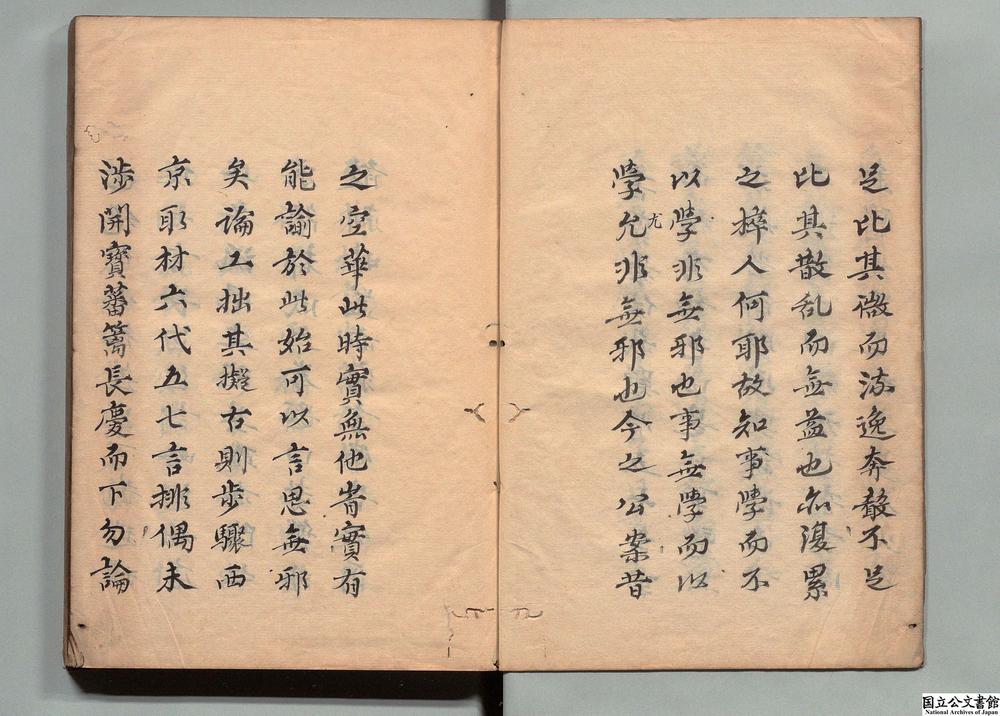 足比其微而流逸奔散不足
比其散乱而無益也亦復累
之梓人何耶故知事學而不
以學非無邪也事無學而以
學允非無邪也今之公案昔
尤
之空華此時實無他省實有
能諭於此始可以言思無邪
矣論工拙其擬古則步驟西
京取材六代五七言排偶未
渉開寶蕃籬長慶而下勿論
国立公文書館
National Archives of Japan